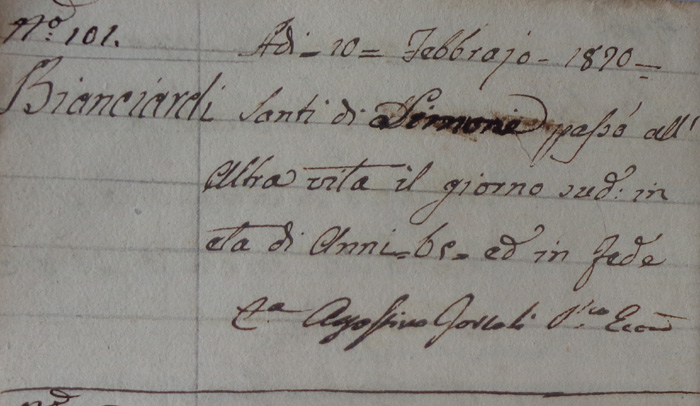 N.º 101.
Adi = 10 = Febbrajo = 1820 =
Bianciardi Santi di Simone passò all'
Altra vita il giorno sud: in
età di Anni = 65 = ed in fede
Agostino Eco